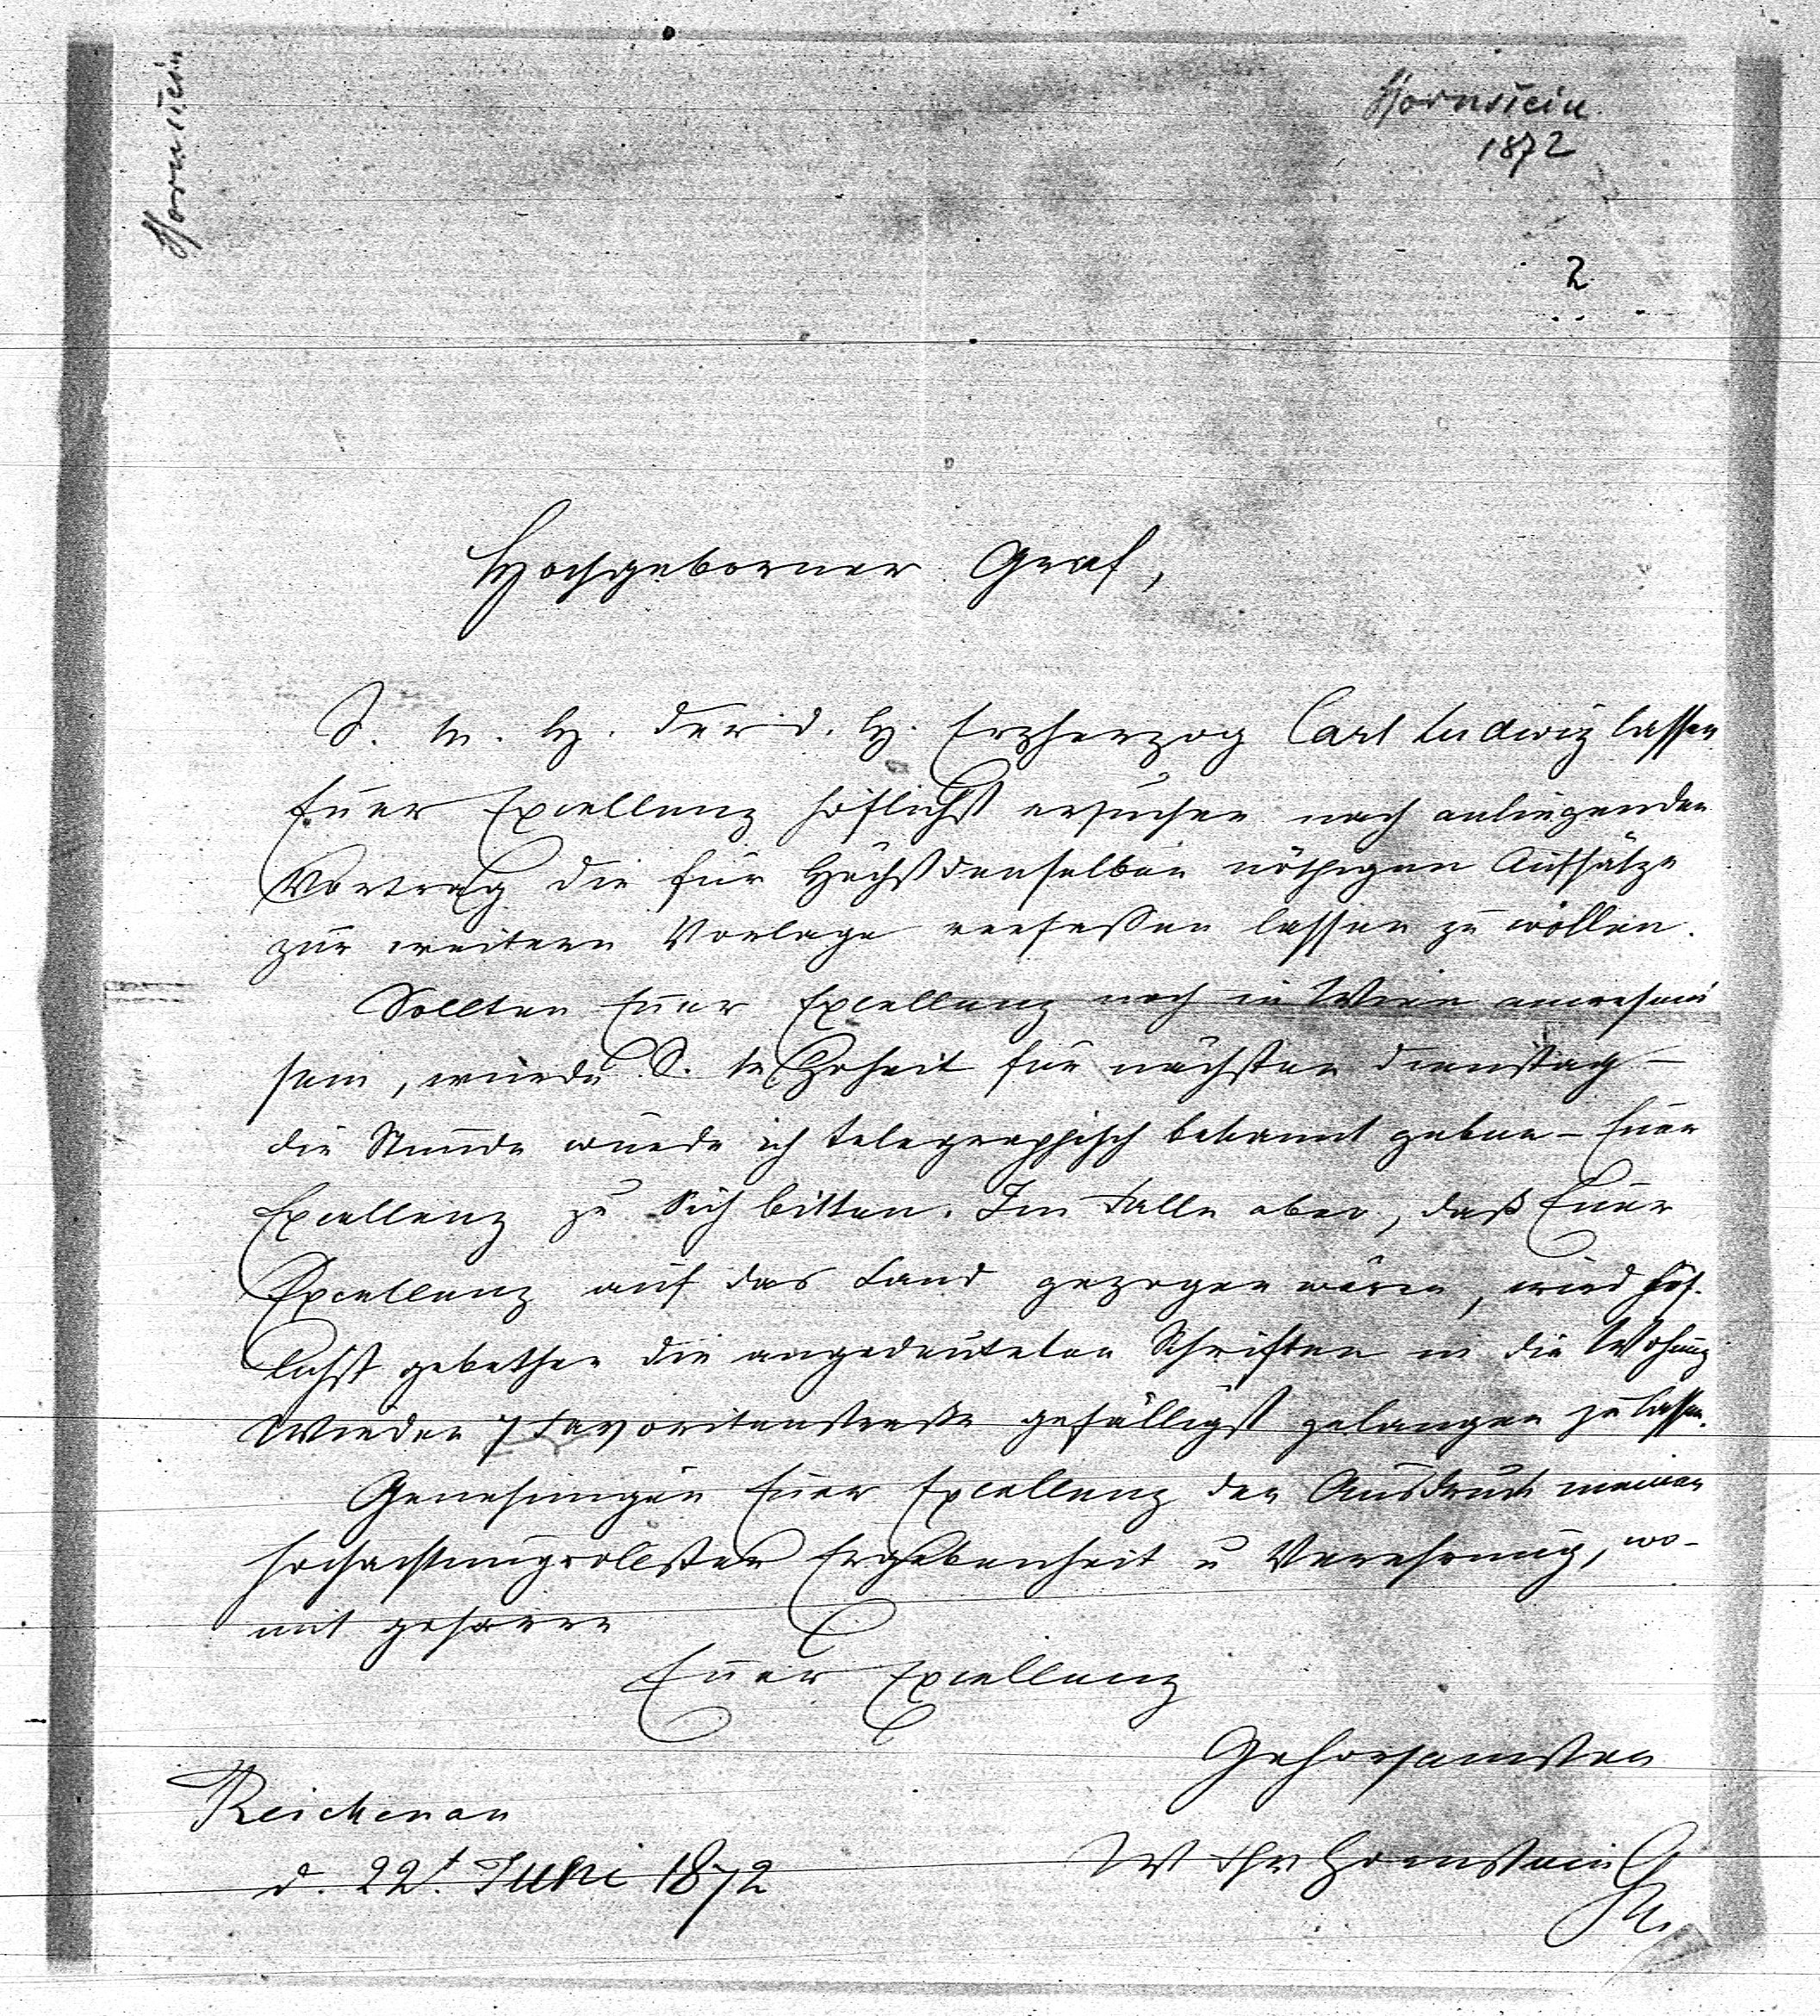 Hornstein
Hornstein
1872
2
Hochgeborner Graf,
S. k. H. der d. H. Erzherzog Carl Ludwig lassen
Euer Excellenz höflichst ersuchen nach anliegenden
Vortrag die für Höchstdenselben nöthigen Aufsätze
zur weitern Vorlage verfassen lassen zu wollen.
Sollten Euer Excellenz noch in Wien anwesend
sein, würde S. k. Hoheit für nächsten Dienstag –
die Stunde würde ich telegraphisch bekannt geben – Euer
Excellenz zu Sich bitten. Im Falle aber, daß Euer
Excellenz auf das Land gezogen wären, wird höf-
lichst gebethen die angedeuteten Schriften in die Wohung
Wieden 7 Favoritenstraße gefälligst gelangen zu lassen.
Genehmigen Euer Excellenz den Ausdruck meiner
hochachtungsvollsten Ergebenheit u Verehrung, wo-
mit geharre
Euer Excellenz
Gehorsamster
Reichenau
d. 22t. Juni 1872
W Fhr Hornstein